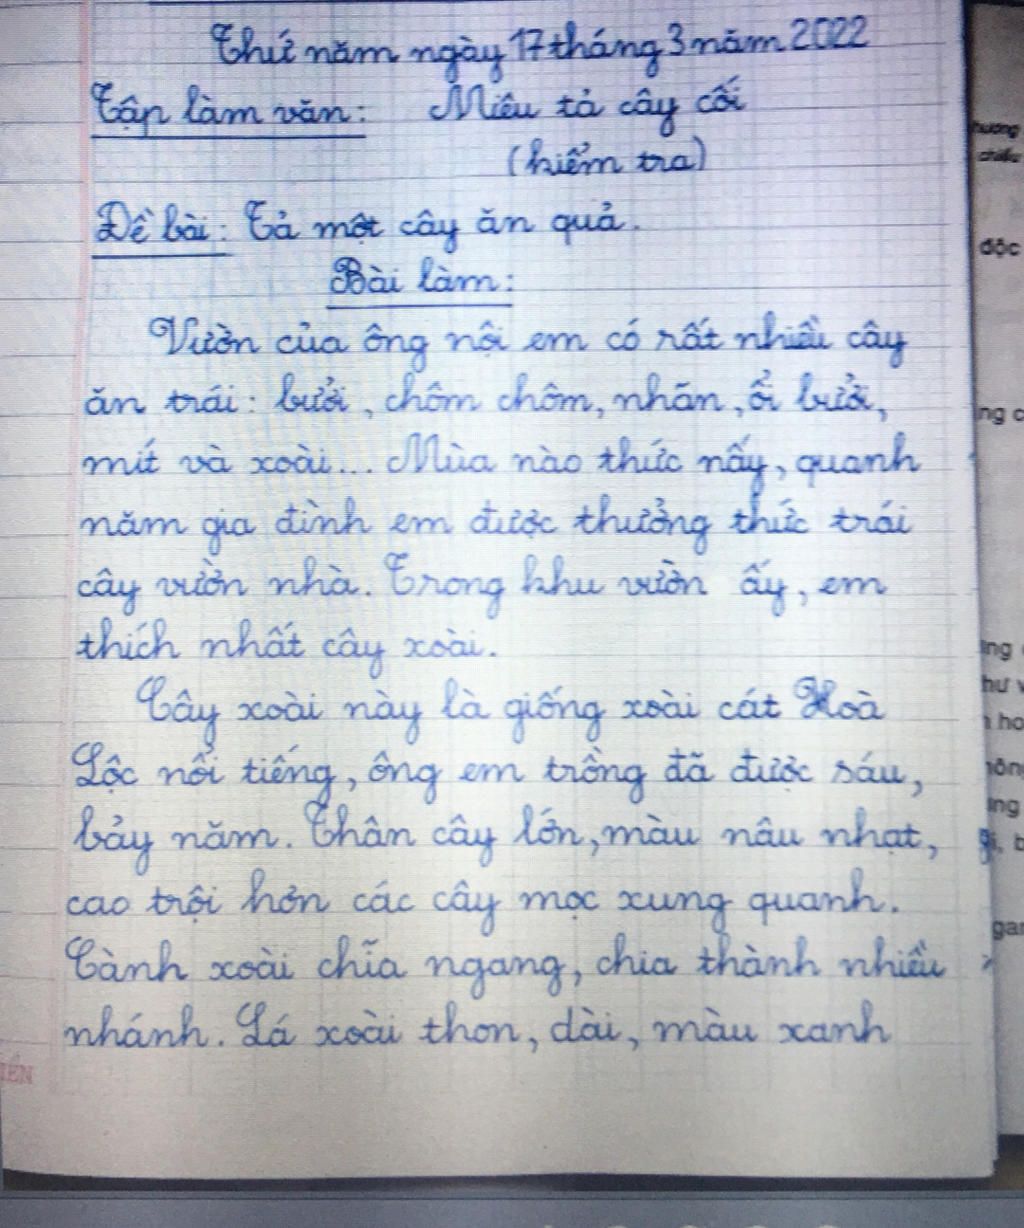 Thứ năm ngày 17 tháng 3 năm 2022
Tập làm văn: Miêu tả cây cối
(kiểm tra)
Đề bài: Tả một cây ăn quả.
Bài làm:
Vườn của ông nội em có rất nhiều cây
ăn trái: bưởi, chôm chôm, nhãn, ổi bưởi,
mít và xoài... Mùa nào thức nấy, quanh
năm gia đình em được thưởng thức trái
cây vườn nhà. Trong khu vườn ấy, em
thích nhất cây xoài.
Cây xoài này là giống xoài cát Hoà
Lộc nổi tiếng, ông em trồng đã được sáu,
bảy năm. Thân cây lớn, màu nâu nhạt,
cao trội hơn các cây mọc xung quanh.
Cành xoài chĩa ngang, chia thành nhiều
nhánh. Lá xoài thon, dài, màu xanh
hương
chiều
độc